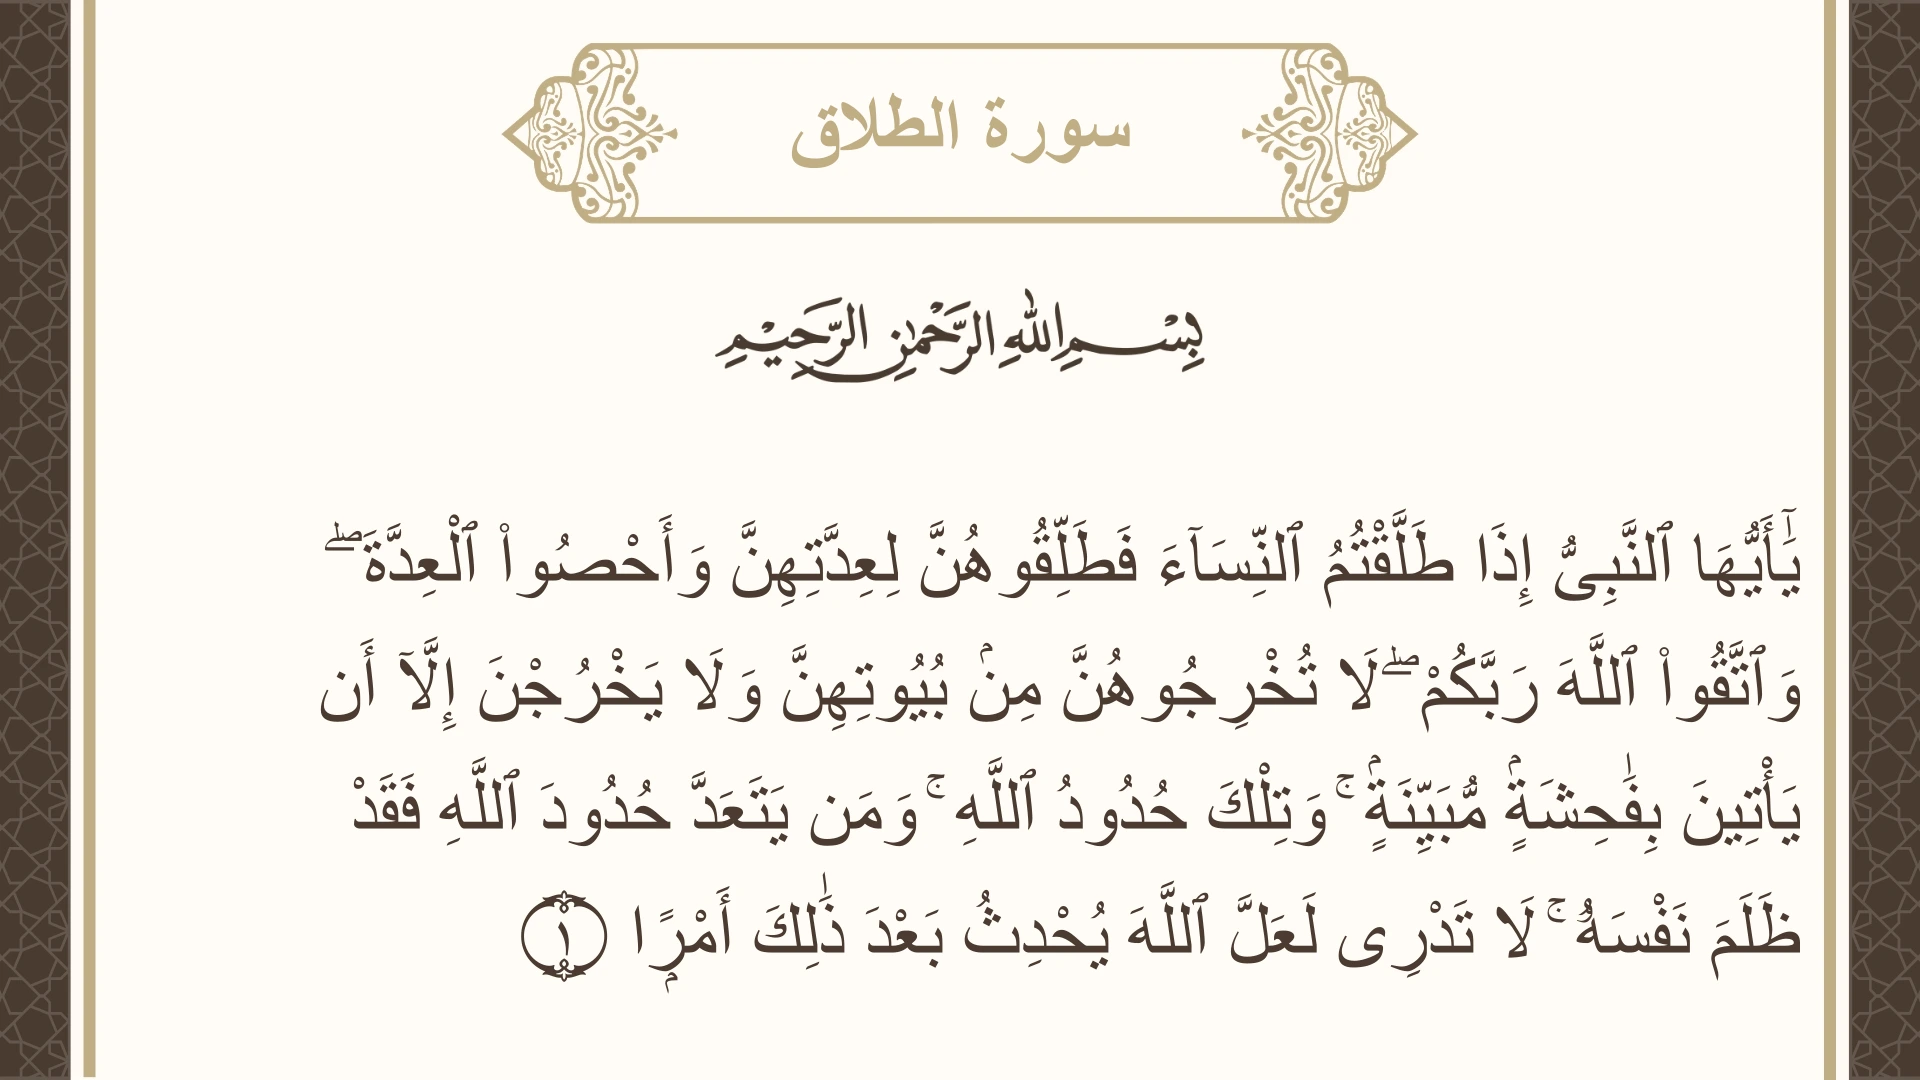 سورة الطلاق
بِسْمِ اللهِ الرَّحْمٰنِ الرَّحِيْمِ
يَٰٓأَيُّهَا ٱلنَّبِىُّ إِذَا طَلَّقْتُمُ ٱلنِّسَآءَ فَطَلِّقُوهُنَّ لِعِدَّتِهِنَّ وَأَحْصُوا۟ ٱلْعِدَّةَ ۖ
وَٱتَّقُوا۟ ٱللَّهَ رَبَّكُمْ ۖ لَا تُخْرِجُوهُنَّ مِنۢ بُيُوتِهِنَّ وَلَا يَخْرُجْنَ إِلَّآ أَن
يَأْتِينَ بِفَٰحِشَةٍۢ مُّبَيِّنَةٍۢ ۚ وَتِلْكَ حُدُودُ ٱللَّهِ ۚ وَمَن يَتَعَدَّ حُدُودَ ٱللَّهِ فَقَدْ
ظَلَمَ نَفْسَهُۥ ۚ لَا تَدْرِى لَعَلَّ ٱللَّهَ يُحْدِثُ بَعْدَ ذَٰلِكَ أَمْرًۭا ١